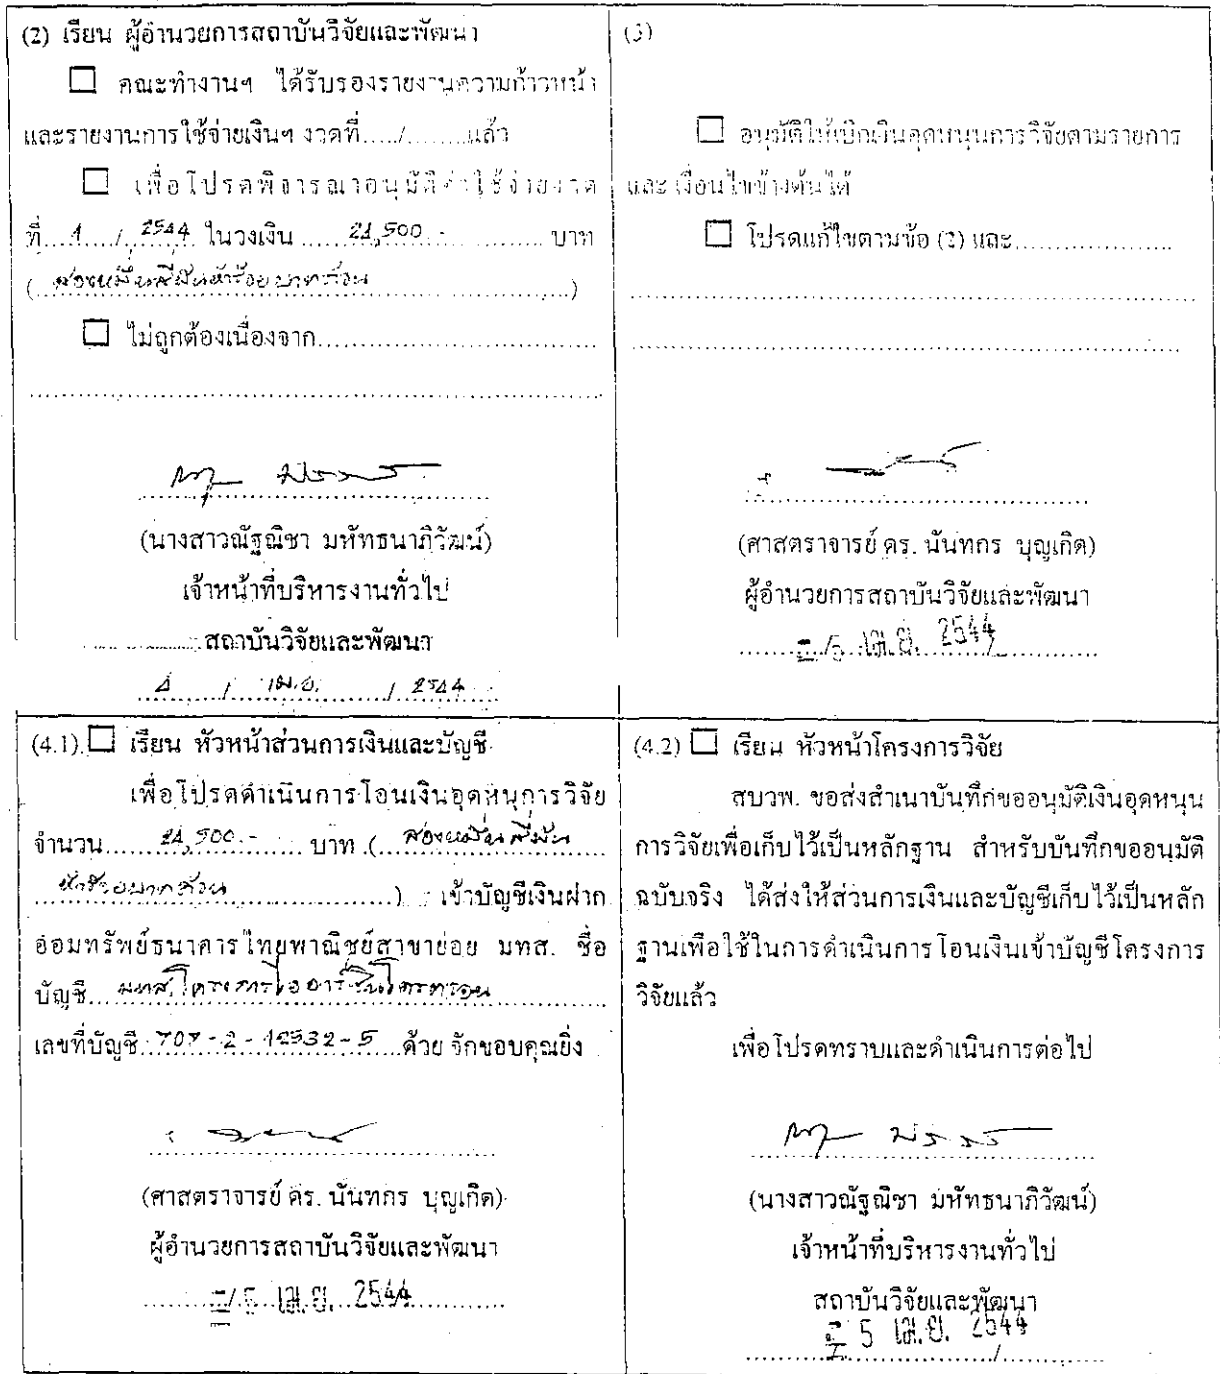 (2) เรียน ผู้อำนวยการสถาบันวิจัยและพัฒนา
คณะทำงานฯ ได้รับรองรายงานความก้าวหน้า
และรายงานการใช้จ่ายเงินฯ งวดที่...../.........แล้ว
เพื่อโปรดพิจารณาอนุมัติค่าใช้จ่ายงวด
ที่...1.../...2544 ในวงเงิน ......24,500.-............ บาท
(...สองหมื่นสี่พันห้าร้อยบาทถ้วน...)
ไม่ถูกต้องเนื่องจาก..............................
(นางสาวณัฐณิชา มหัทธนาภิวัฒน์)
เจ้าหน้าที่บริหารงานทั่วไป
สถาบันวิจัยและพัฒนา
4 / เม.ย. / 2544
(3)
อนุมัติให้เบิกเงินอุดหนุนการวิจัยตามรายการ
และเงื่อนไขข้างต้นได้
โปรดแก้ไขตามข้อ (2) และ....................
(ศาสตราจารย์ ดร. นันทกร บุญเกิด)
ผู้อำนวยการสถาบันวิจัยและพัฒนา
5 เม.ย. 2544
(4.1) เรียน หัวหน้าส่วนการเงินและบัญชี
เพื่อโปรดดำเนินการโอนเงินอุดหนุการวิจัย
จำนวน......24,500.-......... บาท (...สองหมื่นสี่พัน...
...ห้าร้อยบาทถ้วน...) เข้าบัญชีเงินฝาก
ออมทรัพย์ธนาคารไทยพาณิชย์สาขาย่อย มทส. ชื่อ
บัญชี...มทส.โครงการไออาร์ซินโครตรอน...
เลขที่บัญชี..707-2-12532-5...ด้วย จักขอบคุณยิ่ง
(ศาสตราจารย์ ดร. นันทกร บุญเกิด)
ผู้อำนวยการสถาบันวิจัยและพัฒนา
5 เม.ย. 2544
(4.2) เรียน หัวหน้าโครงการวิจัย
สบวพ. ขอส่งสำเนาบันทึกขออนุมัติเงินอุดหนุน
การวิจัยเพื่อเก็บไว้เป็นหลักฐาน สำหรับบันทึกขออนุมัติ
ฉบับจริง ได้ส่งให้ส่วนการเงินและบัญชีเก็บไว้เป็นหลัก
ฐานเพื่อใช้ในการดำเนินการโอนเงินเข้าบัญชีโครงการ
วิจัยแล้ว
เพื่อโปรดทราบและดำเนินการต่อไป
(นางสาวณัฐณิชา มหัทธนาภิวัฒน์)
เจ้าหน้าที่บริหารงานทั่วไป
สถาบันวิจัยและพัฒนา
5 เม.ย. 2544